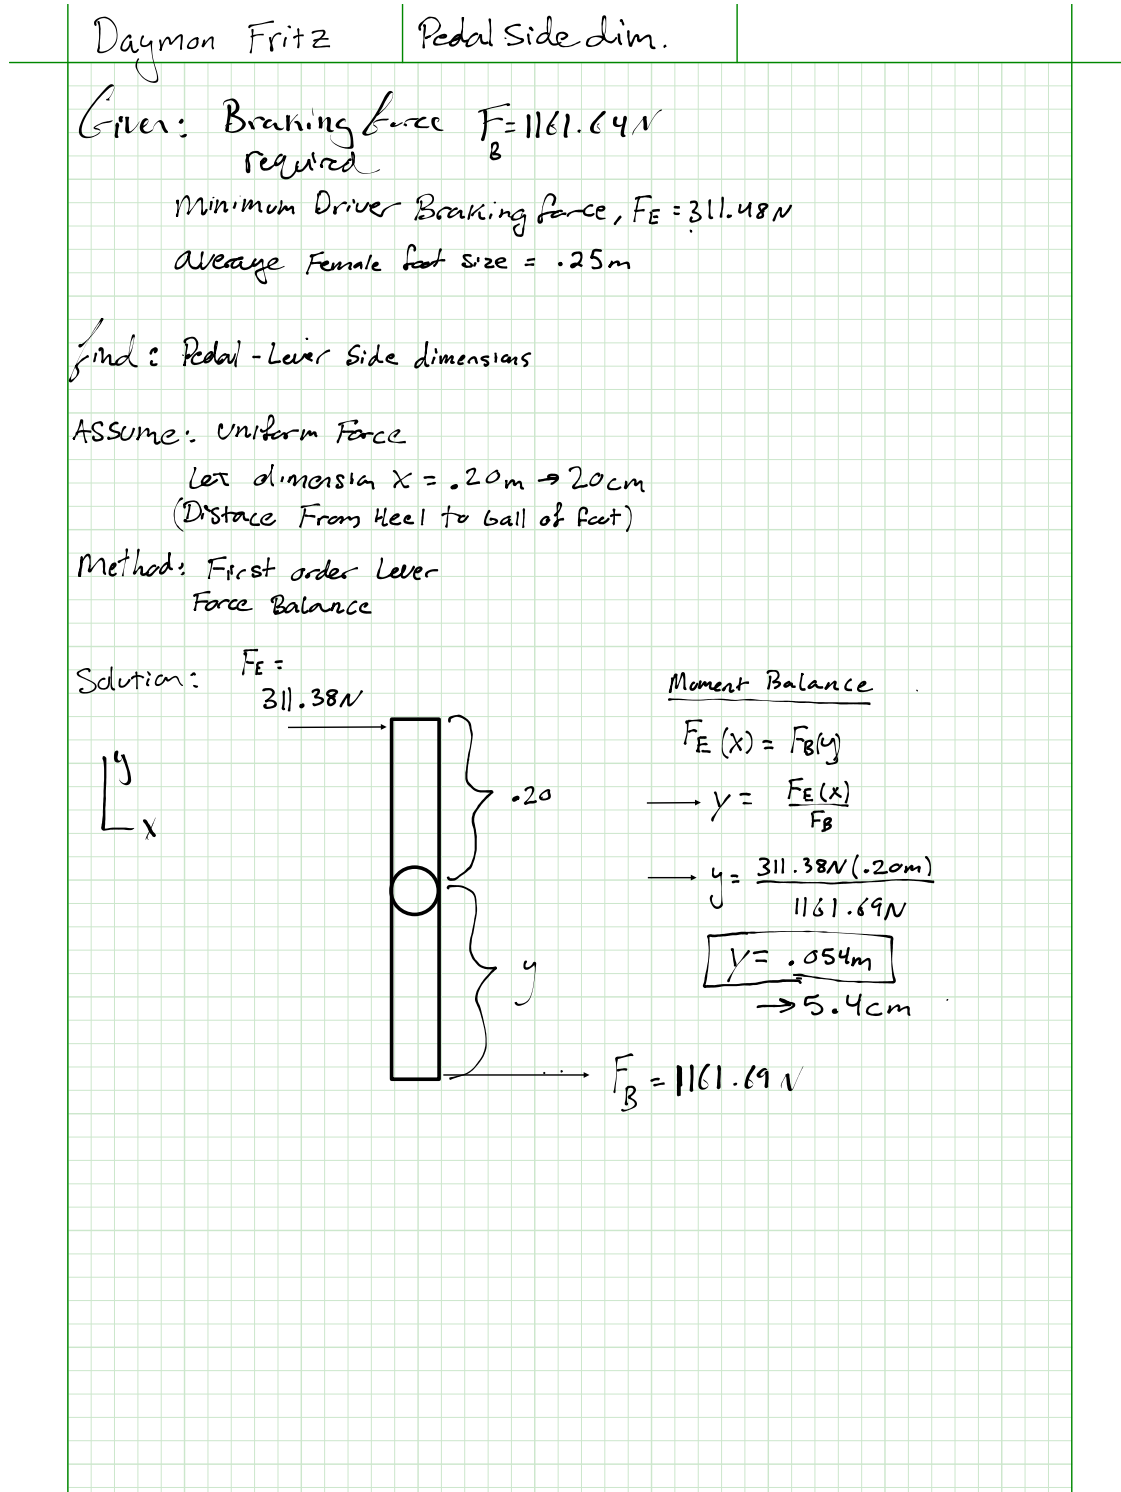 Daymon Fritz
Pedal Side dim.
Given: Braking force F_B = 1161.64N
required
Minimum Driver Braking force, F_E = 311.48N
average Female foot size = .25m
find: Pedal - Lever Side dimensions
ASSume: Uniform Force
Let dimension x = .20m → 20cm
(Distace From Heel to ball of foot)
Method: First order Lever
Force Balance
Solution:
F_E =
311.38N
y
x
.20
y
F_B = 1161.69 N
Moment Balance
F_E (x) = F_B(y)
→ y = F_E(x) / F_B
→ y = 311.38N(.20m) / 1161.69N
y = .054m
→ 5.4cm